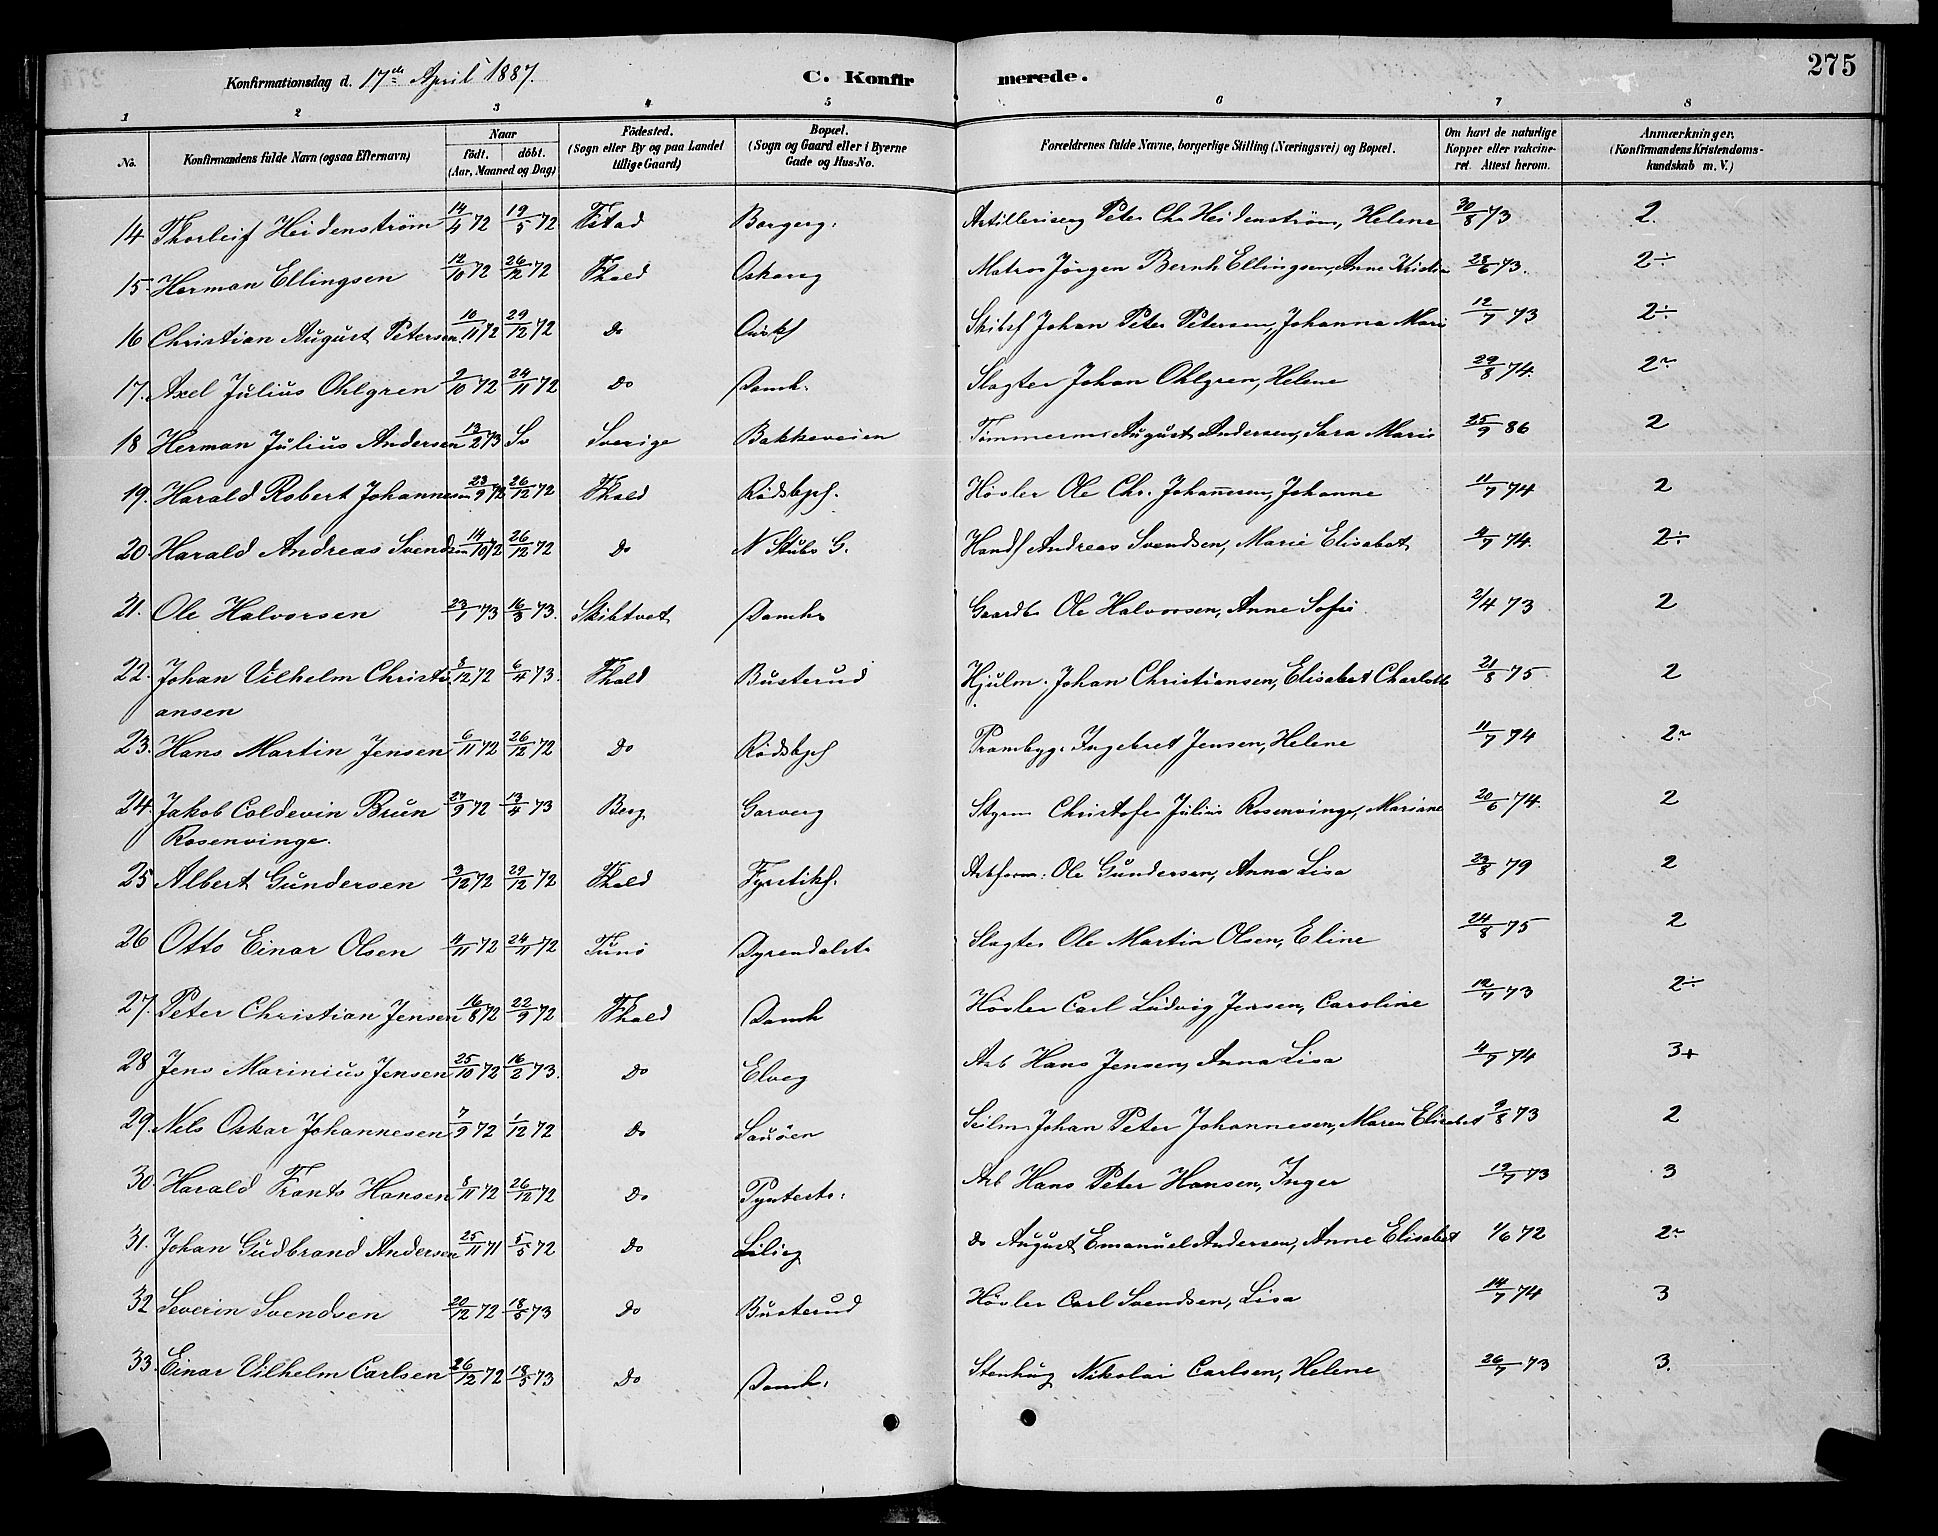 Konfirmationsdag d. 17de April 1887. C. Konfirmerede. 275
1 2 3 4 5 6 7 8
No. Konfirmandens fulde Navn (ogsaa Efternavn) Naar født. døbt. (Aar, Maaned og Dag) Fødested. (Sogn eller By og paa Landet tillige Gaard) Bopæl. (Sogn og Gaard eller i Byerne Gade og Hus-No. Forældrenes fulde Navne, borgerlige Stilling (Næringsvei) og Bopæl. Om havt de naturlige Kopper eller vakcineret. Attest herom. Anmærkninger. (Konfirmandens Kristendomskundskab m. V.)
14 Thorleif Heidenström 14/4 72 19/5 72 Fstad Borgerg. Artilleriserg Peter Chr Heidenström, Helene 30/8 73 2.
15 Herman Ellingsen 12/10 72 26/12 72 Fhald Oskarsg Matros Jörgen Bernh Ellingsen, Anne Kristin 28/6 73. 2÷
16 Christian August Petersen 10/11 72 29/12 72 do Skibsf Johan Peter Petersen, Johanna Marie 12/7 73 2÷
17. Axel Julius Ohlgren 2/10 72 24/11 72 do Damh. Slagter Johan Ohlgren, Helene 29/8 74. 2~
18 Herman Julius Andersen 13/2 73 Sv Sverige Bakkeveien Tömmerm August Andersen, Sara Marie 25/9 86 2
19. Harald Robert Johannesen 23/9 72 26/12 72 Fhald Rödsbjrf. Hövler Ole Chr. Johannesen, Johanne 11/7 74 2
20. Harald Andreas Svendsen 14/10 72 26/12 72 do N Stubs G. Handf Andreas Svendsen, Marie Elisabet 4/7 74. 2÷
21. Ole Halvorsen 23/1 73 16/3 73. Skibtvet Damh. Gaardb Ole Halvorsen, Anne Sofie 2/4 73 2
22. Johan Vilhelm Christiansen 8/12 72 6/4 73. Fhald Busterud Hjulm. Johan Christiansen, Elisabet Charlotte 21/8 75 2
23. Hans Martin Jensen 6/11 72 26/12 72 do Rödsbjrf Prambyg. Ingebret Jensen, Helene 11/7 74 2~
24. Jakob Coldevin Brun Rosenvinge. 27/9 72 13/4 73 Berg Garverg Styrm Christofer Julius Rosenvinge, Mariane 20/6 74. 2
25 Albert Gundersen 3/12 72 29/12 72 Fhald Fyrstikf. Arbform. Ole Gundersen, Anna Lisa 29/8 79 2
26 Otto Einar Olsen 4/11 72 24/11 72 Tunö Dyrendalst. Slagter Ole Martin Olsen, Eline 24/8 75 2
27. Peter Christian Jensen 16/8 72 22/9 72 Fhald Damh Hövler Carl Ludvig Jensen, Caroline 12/7 73 2÷
28 Jens Marinius Jensen 25/10 72 16/2 73. do Elveg Arb Hans Jensen, Anna Lisa 4/7 74 3+
29. Nels Oskar Johannesen 7/9 72 1/12 72 do Sauöen Seilm. Johan Peter Johannesen, Maren Elisabet 9/8 73 2
30. Harald Frants Hansen 8/11 72 26/12 72 do Pynterts. Arb Hans Peter Hansen, Inger 19/7 73 3
31. Johan Gudbrand Andersen 25/11 71 5/5 72 do Lilieg do August Emanuel Andersen, Anne Elisabet 1/6 72 2~
32 Severin Svendsen 20/12 72 18/5 73 do Busterud Hövler Carl Svendsen, Lisa 14/7 74 3
33. Einar Vilhelm Carlsen 26/12 72 18/5 73 do Damh. Stenhug Nikolai Carlsen, Helene 26/7 73 3.